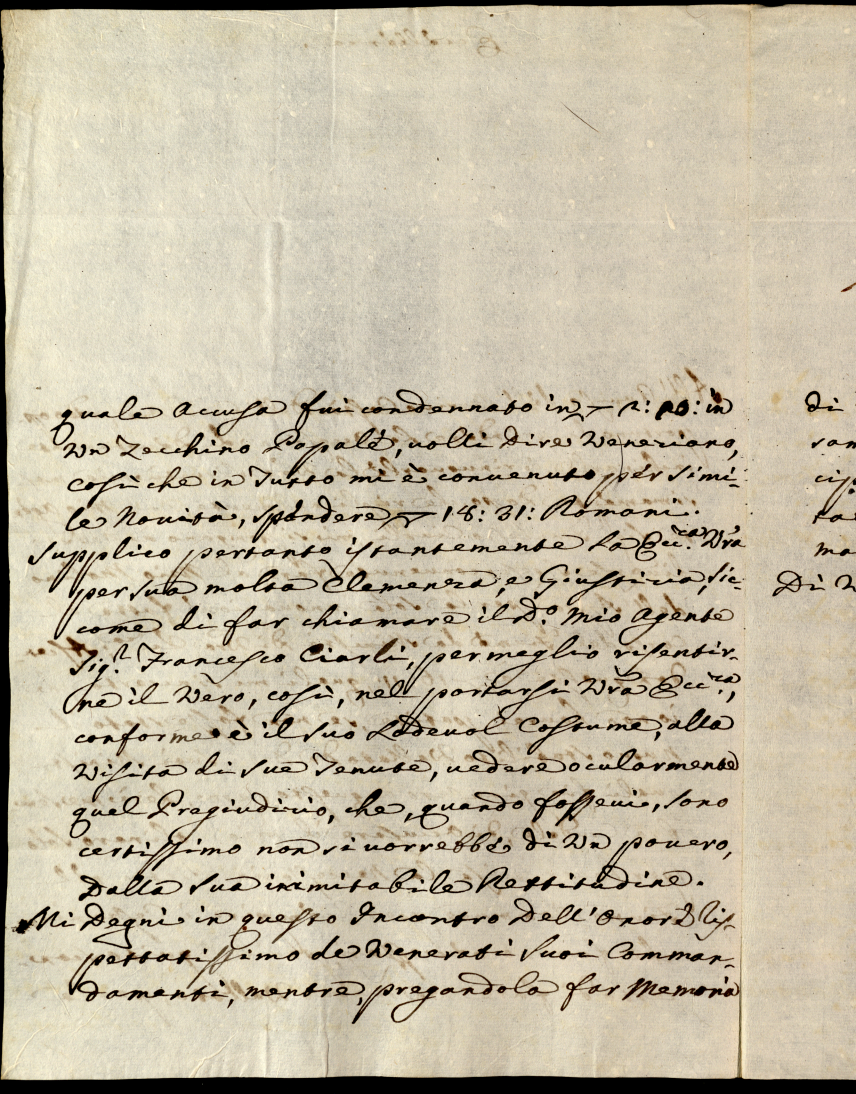 quale Accusa fui condennato in 2: 20: in
Un Zecchino Papale, volli dire Veneziano,
così che in Tutto mi è convenuto per simi-
le Novità, spendere 18: 31: Romani.
Supplico pertanto istantemente La Ecc:ca Vrã
per sua molta Clemenza, e Giustizia, sic-
come di far chiamare il do. Mio Agente
Sig.r Francesco Ciarli, per meglio risentir-
ne il Vero, così, nel portarsi Vrã Ecc:ca,
conforme è il suo Lodevol Costume, alla
Visita di sue Tenute, vedere ocularmente
quel Pregiudizio, che, quando fossevi, sono
certissimo non si vorrebbe di Un povero,
Dalla sua inimitabile Rettitudine.
Mi Degni in questo Incontro Dell' Onor Ris-
pettatissimo de Venerati suoi Comman-
damenti, mentre, pregandola far Memoria
di
ran
cip
ta
ma
Di V